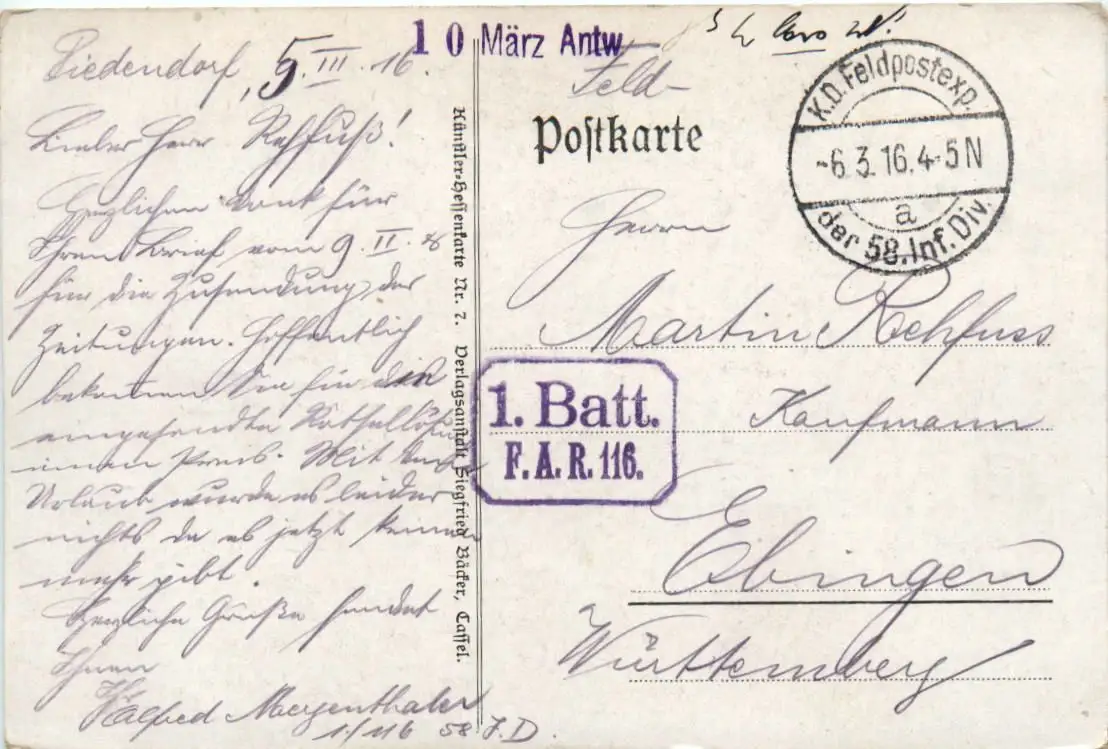 10 März Antw.
Riedendorf, 5. III. 16.
Lieber Herr Rehfuß!
Herzlichen Dank für
Ihren Brief vom 9. II. &
für die Zusendung der
Zeitungen. Hoffentlich
bekommen Sie für die
eingesandte Rätsellösung
einen Preis. Mit
Urlaub wurde es leider
nichts da es jetzt keinen
mehr gibt.
Herzliche Grüße sendet
Ihnen
Alfred Mergenthaler
1./116 58 J. D.
Künstler-Hessenkarte Nr. 7. Verlagsanstalt Siegfried Bäcker, Cassel.
Feld-
Postkarte
K.D. Feldpostexp.
-6.3.16.4-5N
a
der 58. Inf. Div.
Herrn
Martin Rehfuss
Kaufmann
1. Batt.
F. A. R. 116.
Ebingen
Württemberg